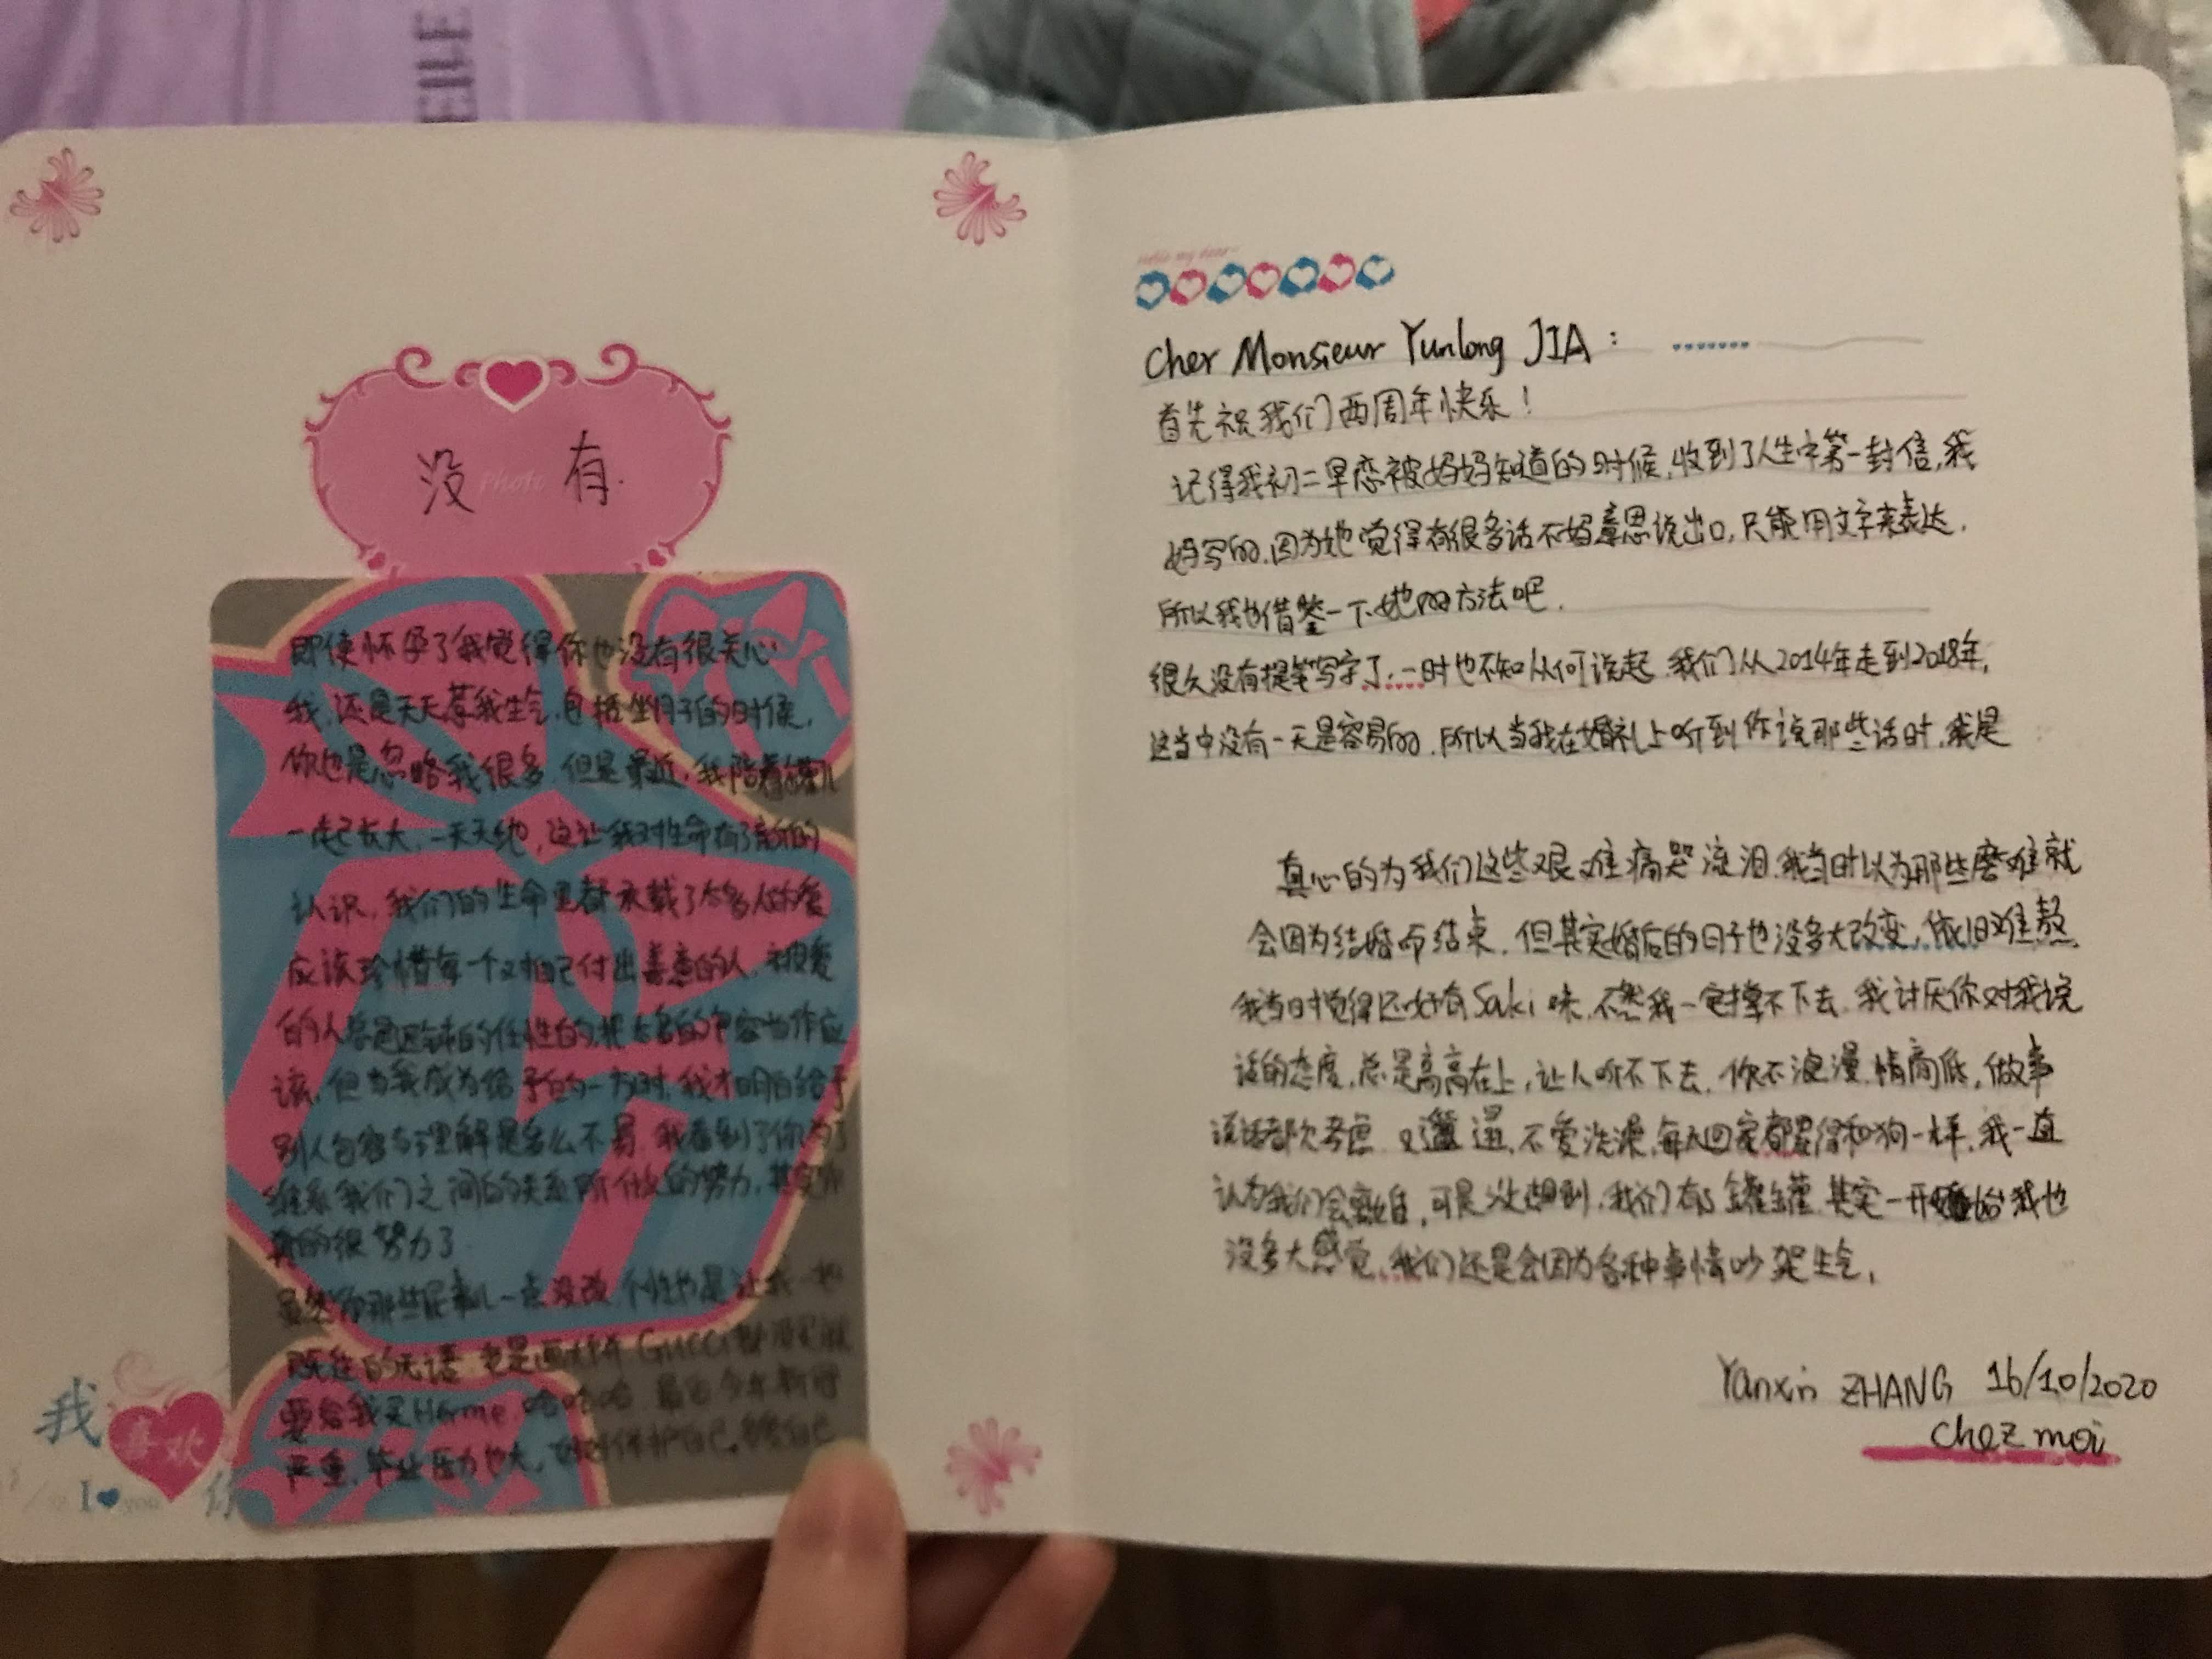 EILE
没 Photo 有.
即使怀孕了我觉得你也没有很关心
我,还是天天惹我生气,包括坐月子的时候,
你也是忽略我很多.但是最近,我陪着罐儿
一起长大,一天天地,这让我对生命有了新的
认识,我们的生命里都承载了太多人的爱
应该珍惜每一个对自己付出善意的人.被爱
的人总是迟钝的任性的,把太多的包容当作应
该,但当我成为给予的一方时,我才明白给予
别人包容与理解是多么不易.我看到了你为了
维系我们之间的关系所做的努力,其实你
真的很努力了.
虽然你那些屁事儿一点没改,个性也是让我一如
既往的无语 也是 Gucci都没买就
要给我买Herme.哈哈哈 今年新冠
严重,毕业压力也大,
我喜欢你
I you
hello my dear~
Cher Monsieur Yunlong JIA :
首先祝我们两周年快乐!
记得我初二早恋被妈妈知道的时候,收到了人生中第一封信,我
妈写的.因为她觉得有很多话不好意思说出口,只能用文字来表达.
所以我也借鉴一下她的方法吧.
很久没有提笔写字了,一时也不知从何说起.我们从2014年走到2018年,
这当中没有一天是容易的.所以当我在婚礼上听到你说那些话时,我是
真心的为我们这些艰难痛哭流泪.我当时以为那些磨难就
会因为结婚而结束.但其实婚后的日子也没多大改变,依旧难熬
我当时觉得还好有Saki 咪.不然我一定撑不下去.我讨厌你对我说
话的态度,总是高高在上,让人听不下去.你不浪漫.情商低,做事
说话都欠考虑 又邋遢,不爱洗澡,每天回家都累得和狗一样,我一直
认为我们会离婚,可是没想到,我们有了罐罐.其实一开始我也
没多大感觉,我们还是会因为各种事情吵架生气,
Yanxin ZHANG 16/10/2020
chez moi